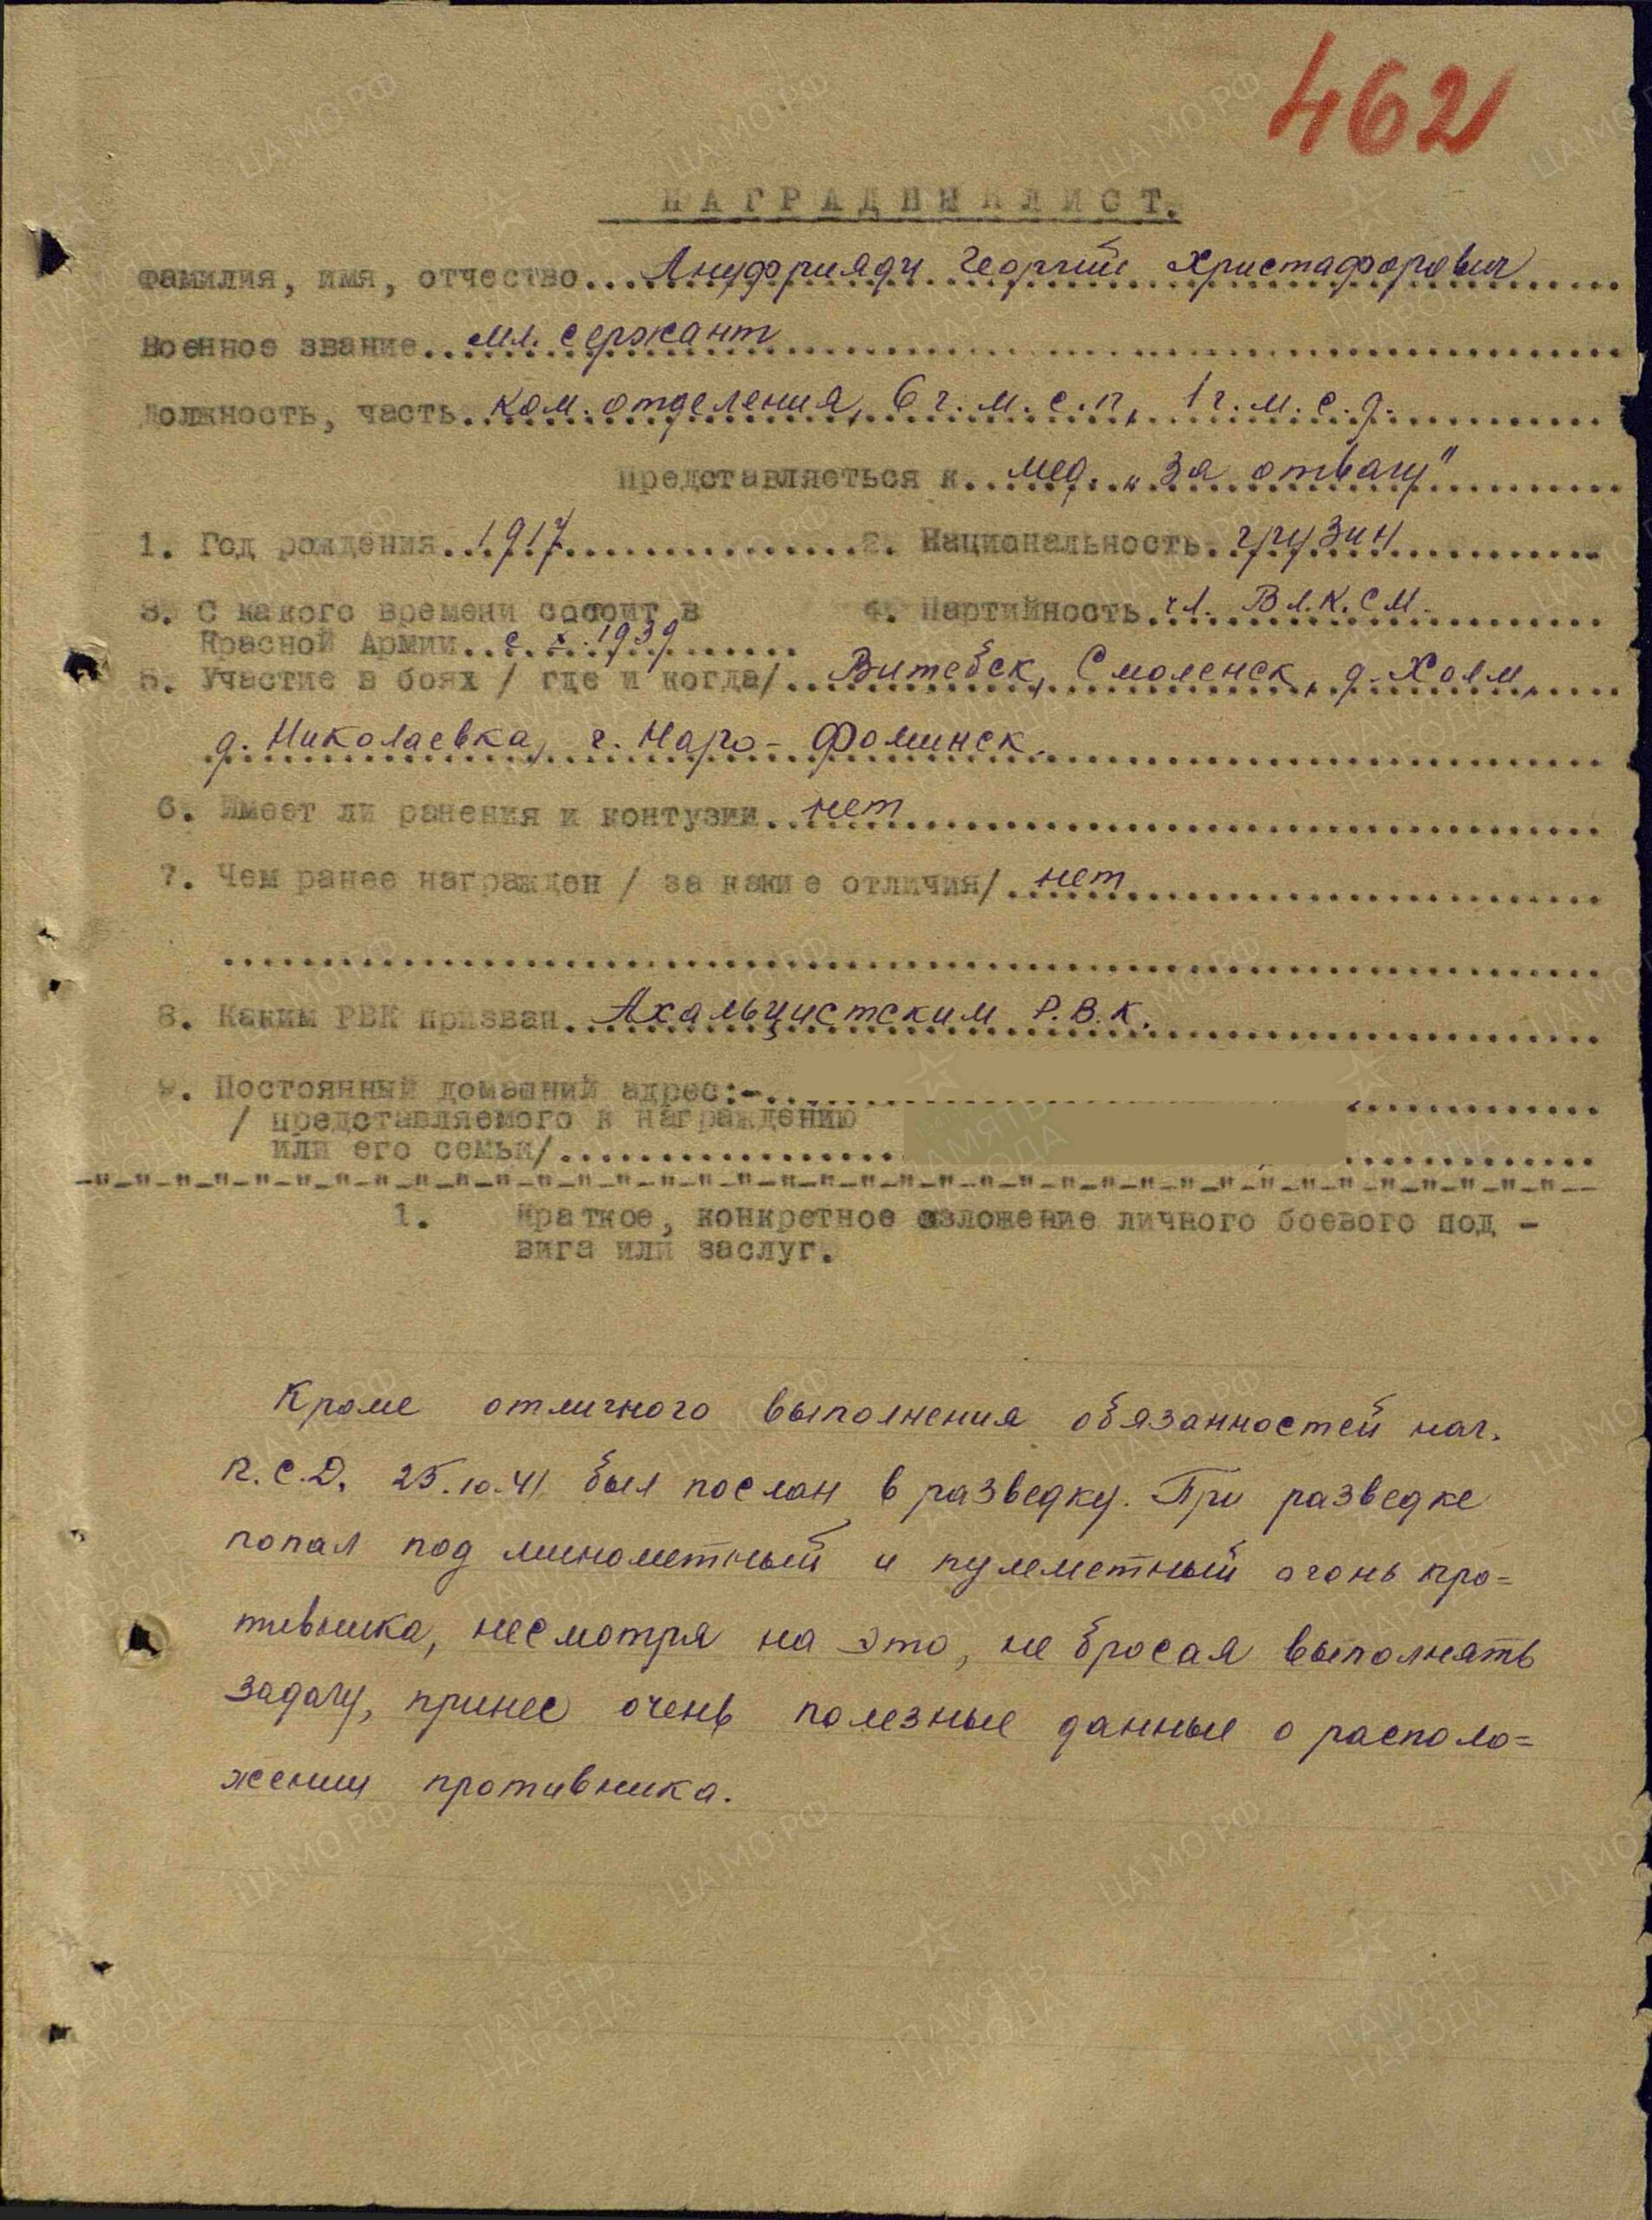 462
НАГРАДНЫЙ ЛИСТ.
Фамилия, имя, отчество... Ануфрияди Георгий Христафорович
Военное звание... мл. сержант
Должность, часть. ком. отделения, 6 г.м.с.п. 1 г.м.с.д.
представляеться к... мед. „За отвагу"
1. Год рождения... 1917 2. Национальность. грузин
3. С какого времени состоит в 4. Партийность. чл. ВЛ.К.СМ.
Красной Армии... с X. 1939
5. Участие в боях / где и когда/... Витебск, Смоленск, д. Холм,
д. Николаевка, г. Наро-Фоминск.
6. Имеет ли ранения и контузии... нет
7. Чем ранее награжден / за какие отличия/. нет
8. Каким РВК призван. Ахальцистским Р.В.К.
9. Постоянный домашний адрес:-
/ представляемого к награждению
или его семьи/
1. Краткое, конкретное изложение личного боевого под -
вига или заслуг.
Кроме отличного выполнения обязанностей нач.
п.с.д. 25.10.41 был послан в разведку. При разведке
попал под минометный и пулеметный огонь про=
тивника, несмотря на это, не бросая выполнять
задачу, принес очень полезные данные о располо=
жении противника.
ЦА МО РФ
ПАМЯТЬ НАРОДА